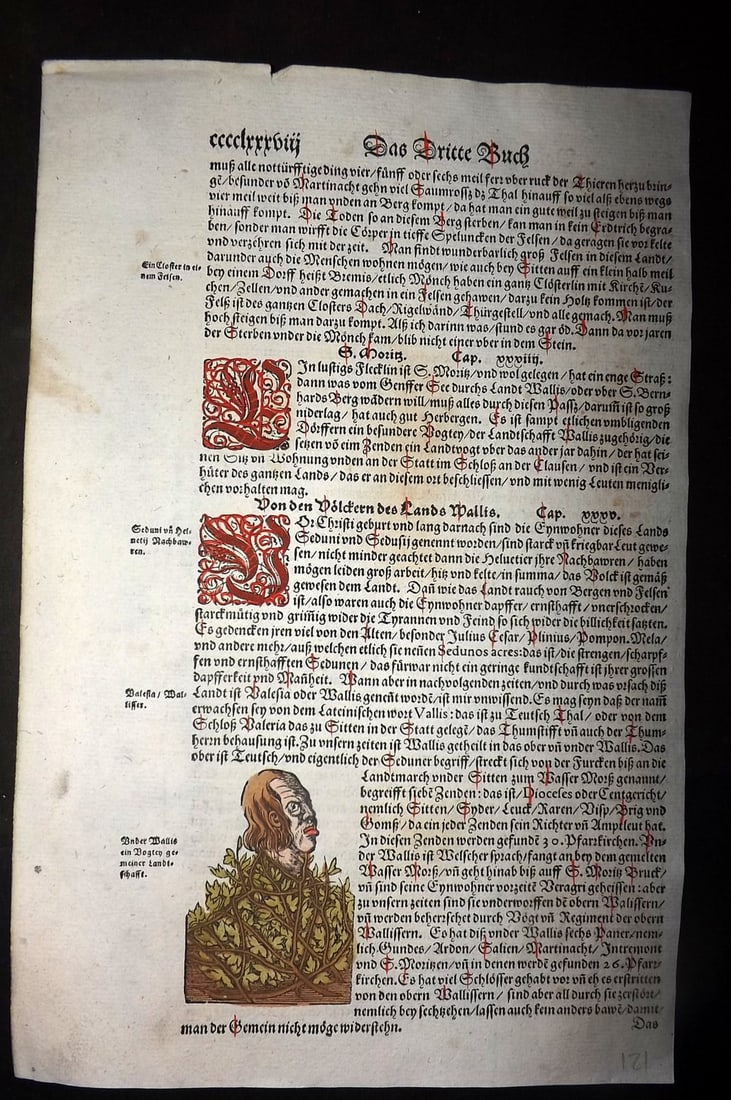 cccclxxxviij Das Dritte Buch
muß alle nottürfftige ding vier/fünff oder sechs meil ferr vber ruck der Thieren herzu brin-
gē/besunder vō Martinacht gehn viel Saumrossz dz Thal hinauff so viel alß ebens wegs
vier meil weit biß man vnden an Berg kompt/da hat man ein gute weil zu steigen biß man
hinauff kompt. Die Toden so an diesem Berg sterben/kan man in kein Erdtrich begra-
ben/sonder man wirfft die Cörper in tieffe Speluncken der Felsen/da geragen sie vor kelte
vnd verzehren sich mit der zeit. Man findt wunderbarlich groß Felsen in diesem Landt/
darunder auch die Menschen wohnen mögen/wie auch bey Sitten auff ein klein halb meil
Ein Closter in ei-
nem Felsen.
bey einem Dorff heißt Bremis/etlich Mönch haben ein gantz Clösterlin mit Kirchē/Ku-
chen/Zellen/vnd ander gemachen in ein Felsen gehawen/darzu kein Holtz kommen ist/der
Felß ist des gantzen Closters Dach/Rigelwänd/Thürgestell/vnd alle gemach. Man muß
hoch steigen biß man darzu kompt. Alß ich darinn was/stund es gar öd. Dann da vor jaren
der Sterben vnder die Mönch kam/blib nicht einer vber in dem Stein.
S. Moritz. Cap. xxxiiij.
EIn lustigs Flecklin ist S. Moritz/vnd wol gelegen/hat ein enge Straß:
dann was vom Genffer See durchs Landt Wallis/oder vber S. Bern-
hards Berg wädern will/muß alles durch diesen Passz/darum̄ ist so groß
niderlag/hat auch gut Herbergen. Es ist sampt etlichen vmbligenden
Dörffern ein besundere Vogtey/der Landtschafft Wallis zugehörig/die
setzen vō eim Zenden ein Landtvogt vber das ander jar dahin/der hat sei-
nen Sitz vn̄ Wohnung vnden an der Statt im Schloß an der Clausen/vnd ist ein Ver-
hüter des gantzen Lands/das er an diesem ort beschliessen/vnd mit wenig Leuten menigli-
chen vorhalten mag.
Von den Völckern des Lands Wallis. Cap. xxxv.
Seduni vn̄ Hel-
uetij Nachbaw-
ren.
VOr Christi geburt vnd lang darnach sind die Eynwohner dieses Lands
Seduni vnd Sedusij genennt worden/sind starck vn̄ kriegbar Leut gewe-
sen/nicht minder geachtet dann die Heluetier jhre Nachbawren/haben
mögen leiden groß arbeit/hitz vnd kelte/in summa/das Volck ist gemäß
gewesen dem Landt. Dan̄ wie das Landt rauch von Bergen vnd Felsen
ist/also waren auch die Eynwohner dapffer/ernsthafft/vnerschrocken/
starckmütig vnd grim̄ig wider die Tyrannen vnd Feind so sich wider die billichkeit satzten.
Es gedencken jren viel von den Alten/besonder Julius Cesar/Plinius/Pompon. Mela/
vnd andere mehr/auß welchen etlich sie nennen Sedunos acres: das ist/die strengen/scharpf-
fen vnd ernsthafften Sedunen/das fürwar nicht ein geringe kundtschafft ist jhrer grossen
dapfferkeit vnd Man̄heit. Wann aber in nachvolgenden zeiten/vnd durch was vrsach diß
Valesia/Wal-
lisser.
Landt ist Valesia oder Wallis genen̄t wordē/ist mir vnwissend. Es mag seyn daß der nam̄
erwachsen sey von dem Lateinischen wort Vallis: das ist zu Teutsch Thal/oder von dem
Schloß Valeria das zu Sitten in der Statt gelegē/das Thumstifft vn̄ auch der Thum-
herrn behausung ist. Zu vnsern zeiten ist Wallis getheilt in das ober vn̄ vnder Wallis. Das
ober ist Teutsch/vnd eigentlich der Seduner begriff/streckt sich von der Furcken biß an die
Landtmarch vnder Sitten zum Wasser Morß genannt/
begreifft siebē Zenden: das ist/Dioceles oder Centgericht/
nemlich Sitten/Syder/Leuck/Raren/Visp/Brig vnd
Gomß/da ein jeder Zenden sein Richter vn̄ Amptleut hat.
In diesen Zenden werden gefundē 30. Pfarkirchen. Vn-
Vnder Wallis
ein Vogtey ge-
meiner Landt-
schafft.
der Wallis ist Welscher sprach/fangt an bey dem gemelten
Wasser Morß/vn̄ geht hinab biß auff S. Moritz Bruck/
vn̄ sind seine Eynwohner vorzeitē Veragri geheissen: aber
zu vnsern zeiten sind sie vnderworffen dē obern Walissern/
vn̄ werden beherrschet durch Vögt vn̄ Regiment der obern
Wallissern. Es hat diß vnder Wallis sechs Paner/nem-
lich Gundes/Ardon/Salien/Martinacht/Intremont
vnd S. Moritzen/vn̄ in denen werdē gefunden 26. Pfarr-
kirchen. Es hat viel Schlösser gehabt vor vn̄ eh es erstritten
von den obern Wallissern/sind aber all durch sie zerstört/
nemlich bey sechtzehen/lassen auch kein anders bawē/damit
man der Gemein nicht möge widerstehn.
Das
121